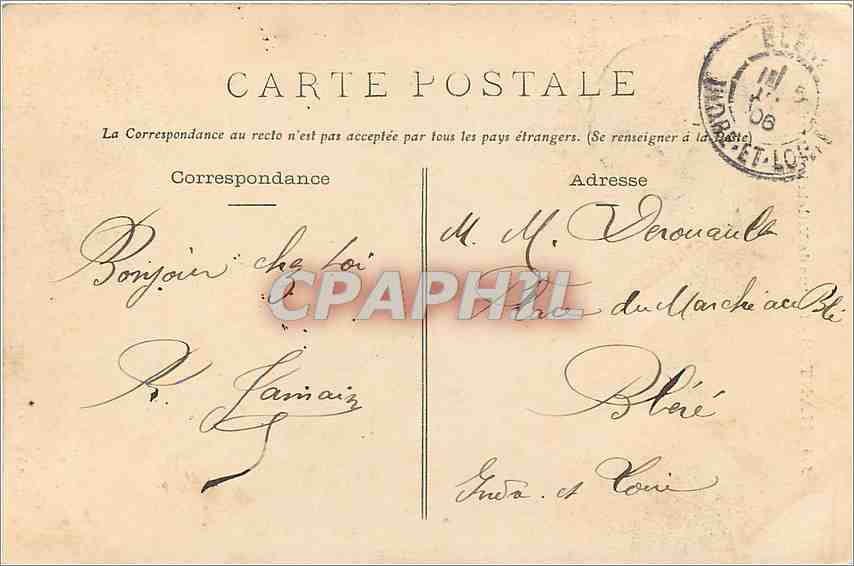 CARTE POSTALE
La Correspondance au recto n'est pas acceptée par tous les pays étrangers. (Se renseigner à la Poste)
Correspondance
Adresse
Bonjour chez toi
Jamain
M. M. Derouault
Place du Marché au Blé
Bléré
Indre et Loire
CPAPHIL
INDRE-ET-LOIRE
06